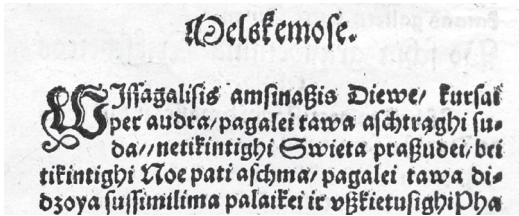 Melskemose.
WIſſagaliſis amſinaſzis Diewe/ kurſai
per audra/ pagalei tawa aſchtrąghi ſu-
da/,netikintighi Swieta praſzudei/ bei
tikintighi Noe pati aſchma/ pagalei tawa di-
dʒoya ſuſſimilima palaikei ir vſzkietuſighi Pha